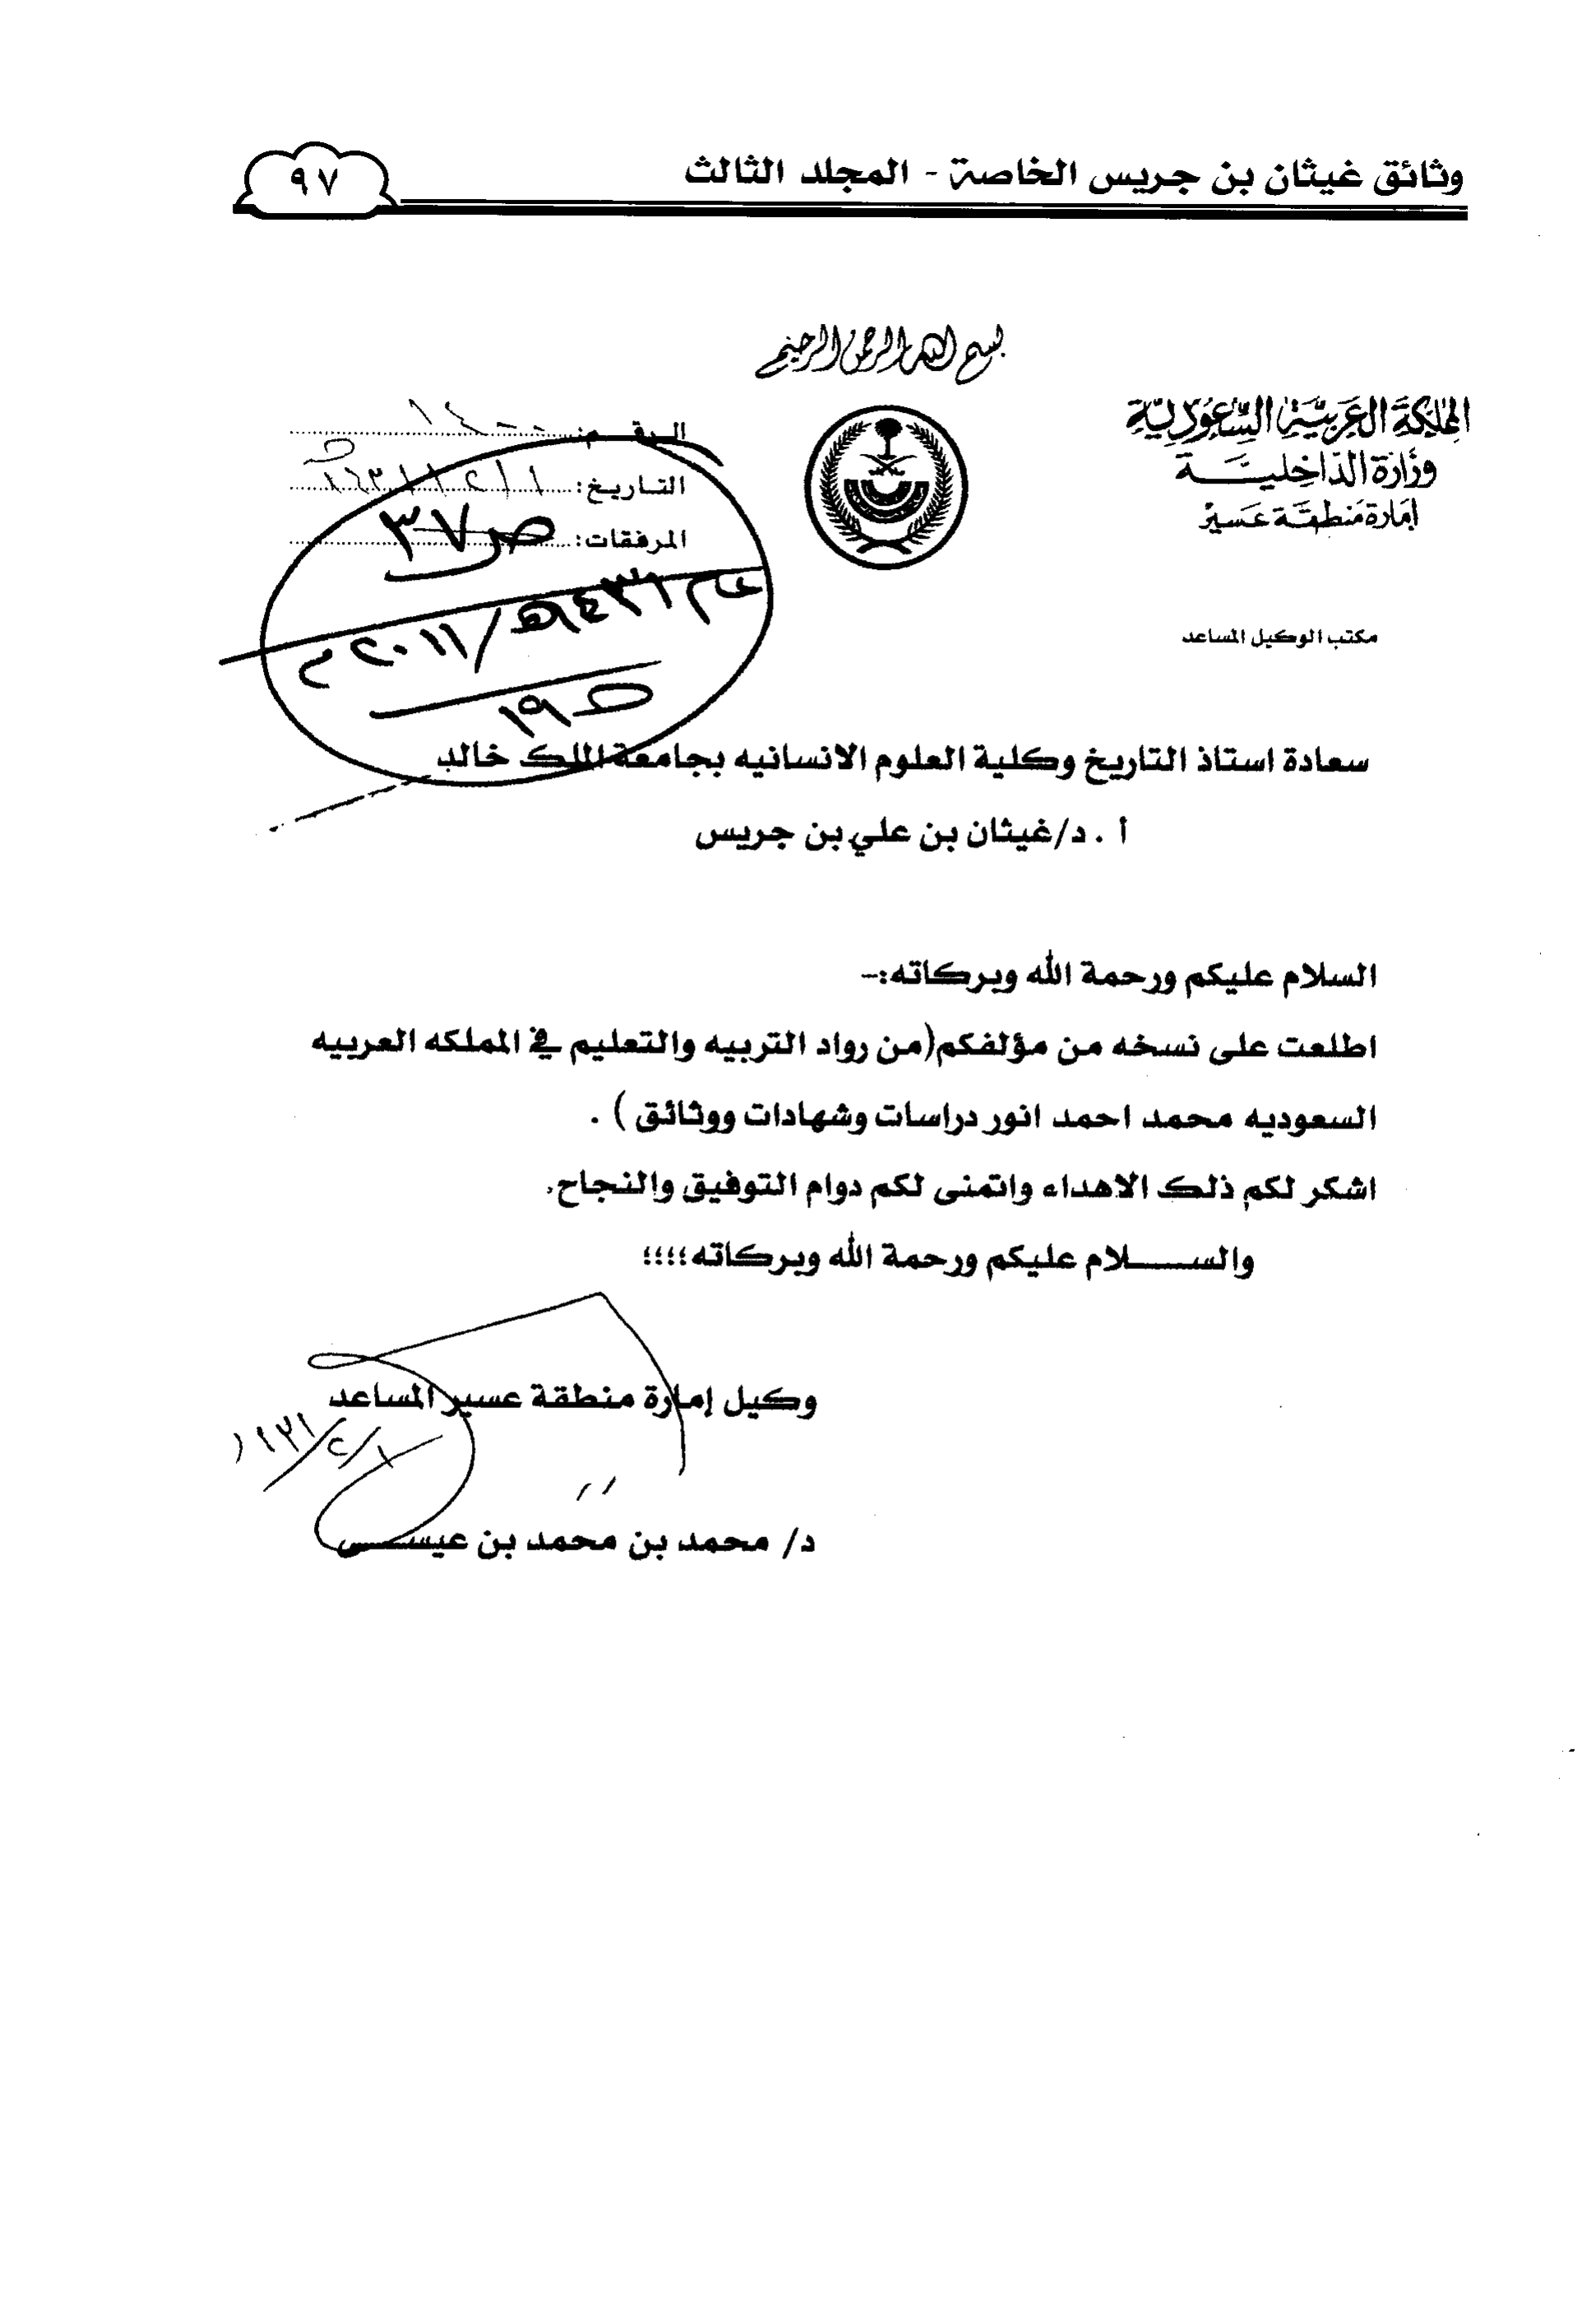 وثائق غيثان بن جريس الخاصة - المجلد الثالث
٩٧
بسم الله الرحمن الرحيم
المملكة العربية السعودية
وزارة الداخلية
إمارة منطقة عسير
مكتب الوكيل المساعد
الرقم:
التاريخ:
المرفقات:
ص ٣٧
سعادة استاذ التاريخ وكلية العلوم الانسانيه بجامعة الملك خالد
أ . د/غيثان بن علي بن جريس
السلام عليكم ورحمة الله وبركاته:-
اطلعت على نسخه من مؤلفكم(من رواد التربيه والتعليم في المملكه العربيه
السعوديه محمد احمد انور دراسات وشهادات ووثائق ) .
اشكر لكم ذلك الاهداء واتمنى لكم دوام التوفيق والنجاح,
والســـــلام عليكم ورحمة الله وبركاته؛؛؛؛
وكيل إمارة منطقة عسير المساعد
د/ محمد بن محمد بن عيســـى